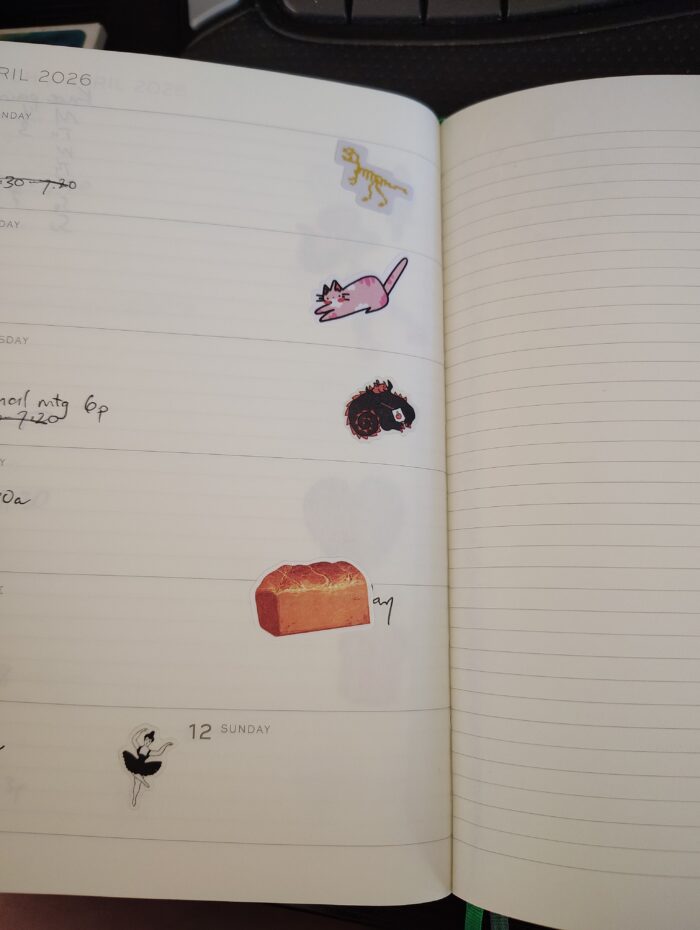 RIL 2026
NDAY
30-7.30
DAY
SDAY
mtg 6p
-7.20
Y
0a
E
12 SUNDAY